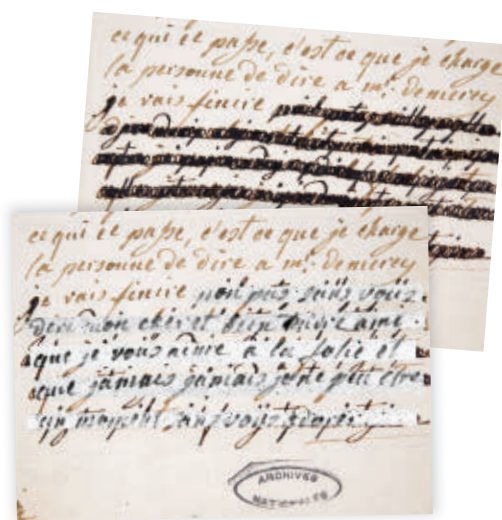 ce qui ce passe, c'est ce que je charge
la personne de dire a mr. de mercy
je vais finire
ce qui ce passe, c'est ce que je charge
la personne de dire a mr. de mercy
je vais finire non pas sans vous
dire mon cher et bien tendre ami
que je vous aime à la folie et
que jamais jamais je ne peu être
un moment sans vous adorer
ARCHIVES
NATIONALES